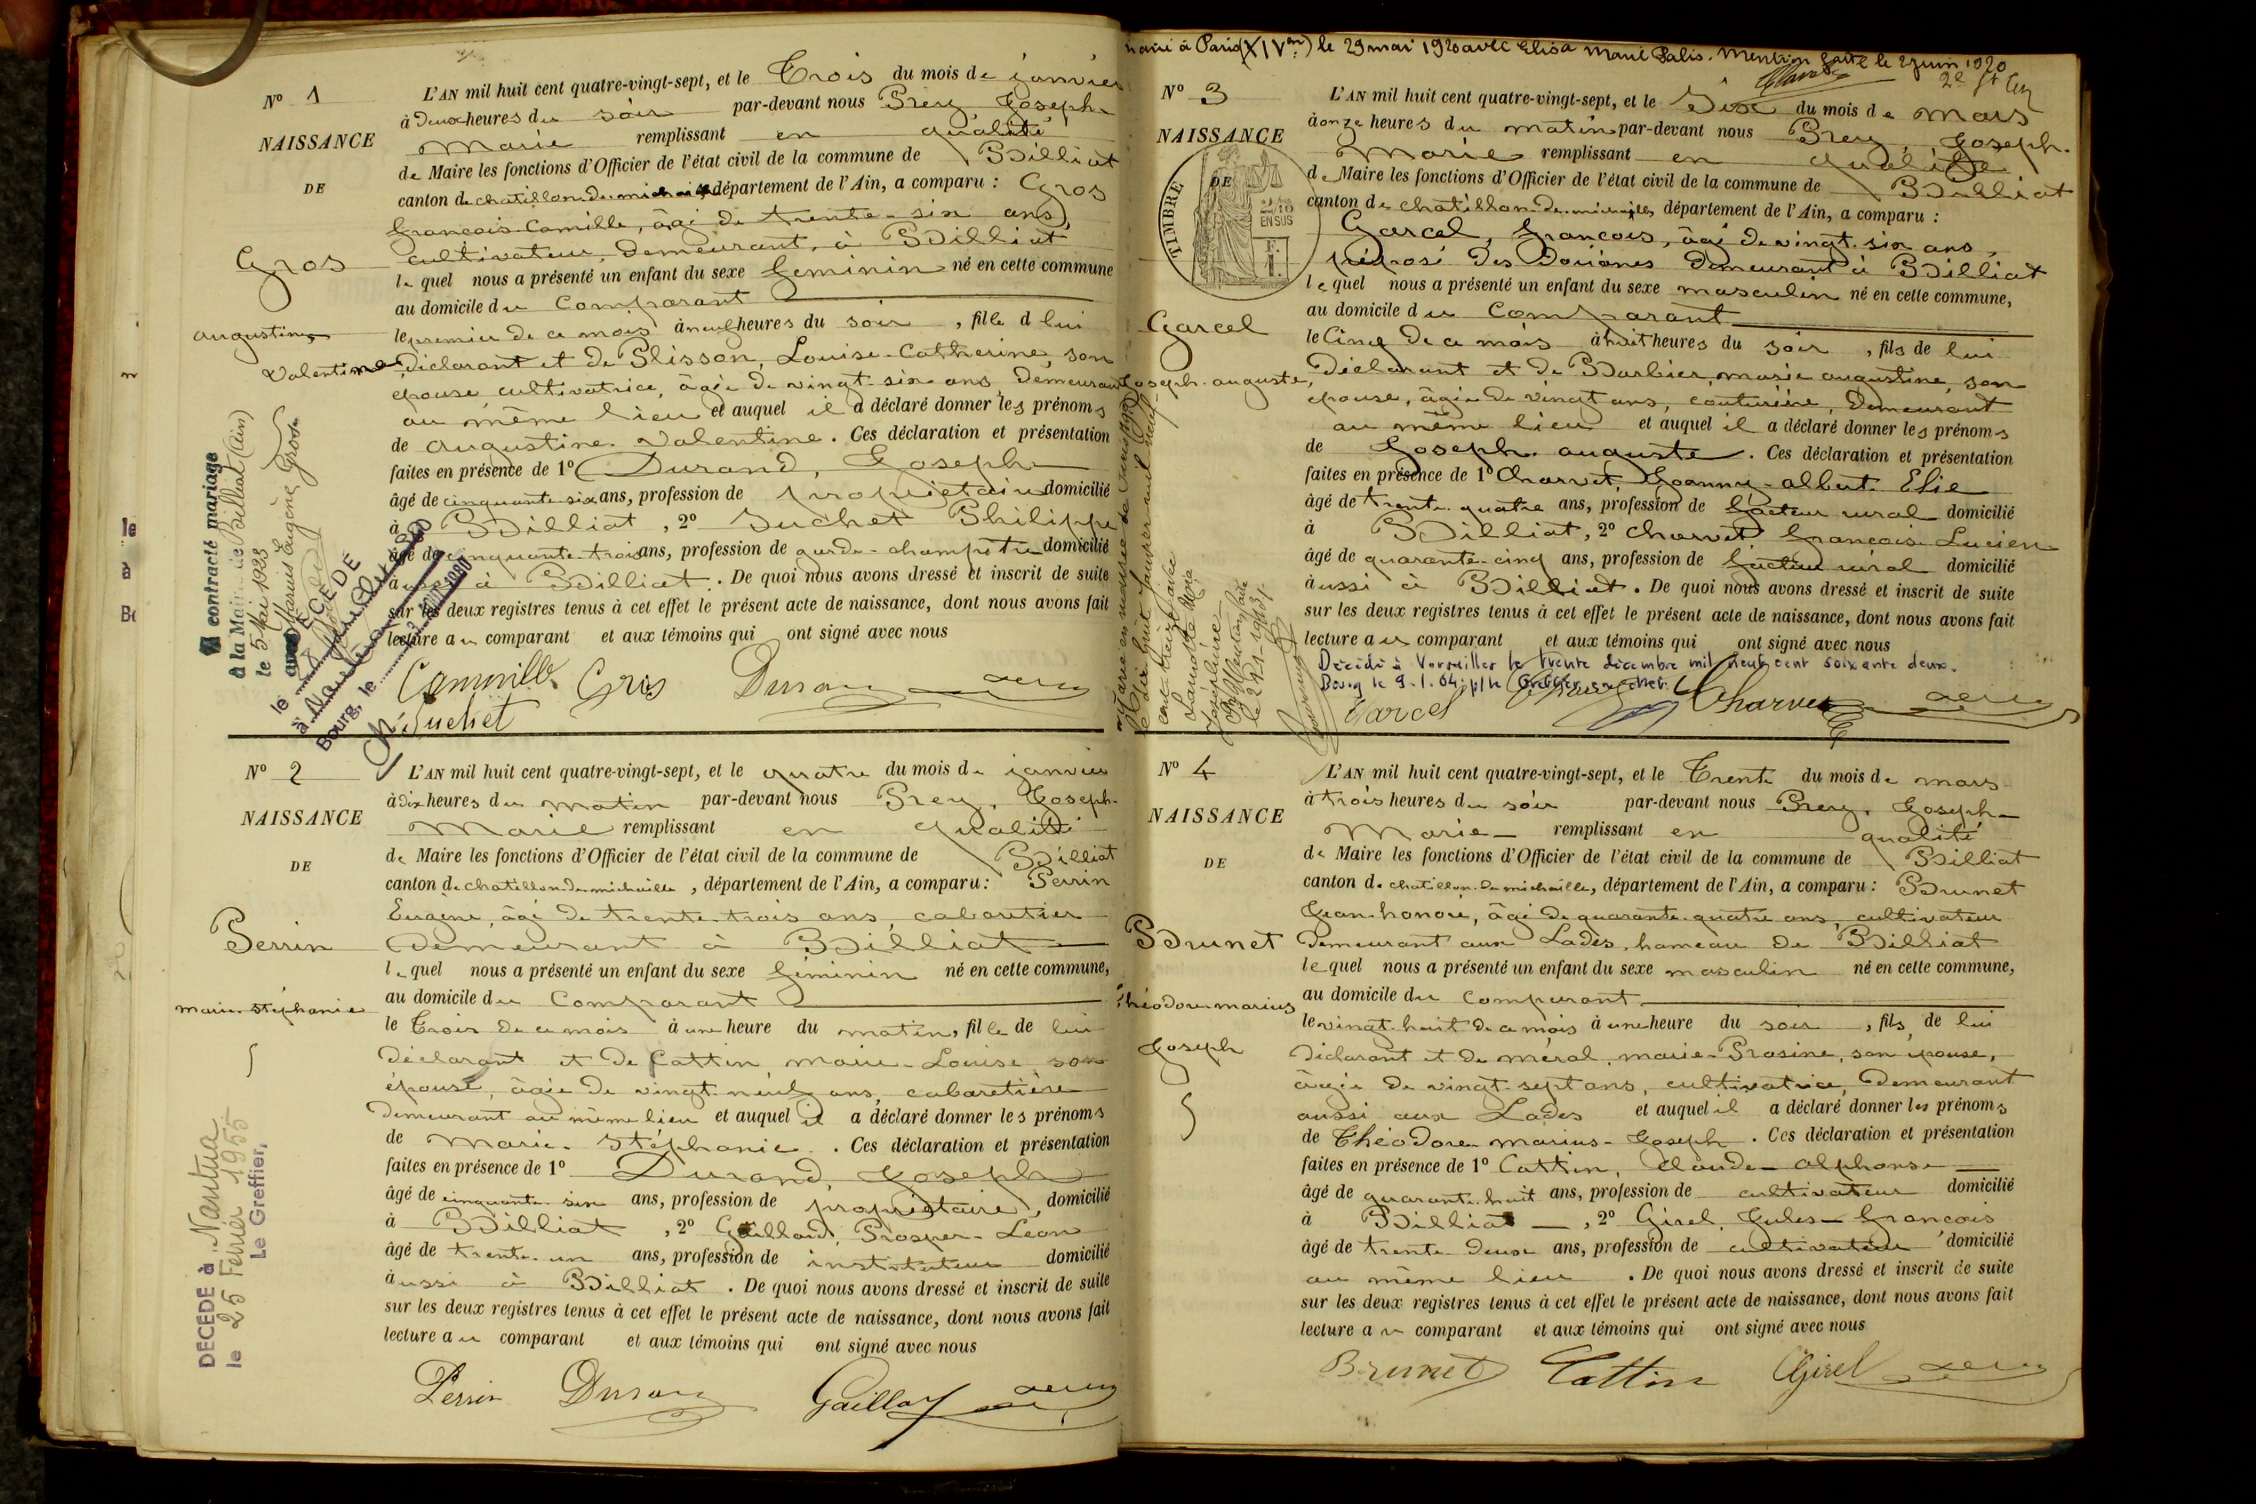 N° 1
NAISSANCE
DE
Gros
augustine
Valentine
L'AN mil huit cent quatre-vingt-sept, et le Trois du mois de janvier
à Deux heures du soir par-devant nous Prey Joseph
Marie remplissant en qualité
de Maire les fonctions d'Officier de l'état civil de la commune de Billiat
canton de chatillon-de-michaille département de l'Ain, a comparu : Gros
François-Camille, âgé de trente-six ans,
cultivateur, demeurant, à Billiat
lequel nous a présenté un enfant du sexe féminin né en cette commune
au domicile du comparant
le premier de ce mois à neuf heures du soir, fille d lui
déclarant et de Plisson, Louise-Catherine son
épouse cultivatrice, âgée de vingt-six ans demeurant
au même lieu et auquel il a déclaré donner les prénoms
de augustine Valentine. Ces déclaration et présentation
faites en présence de 1° Durand, Joseph
âgé de cinquante-six ans, profession de propriétaire domicilié
à Billiat, 2° Suchet Philippe
âgé de cinquante-trois ans, profession de garde-champêtre domicilié
à aussi à Billiat. De quoi nous avons dressé et inscrit de suite
sur les deux registres tenus à cet effet le présent acte de naissance, dont nous avons fait
lecture au comparant et aux témoins qui ont signé avec nous
A contracté mariage
à la Mairie de Billiat (Ain)
le 5 Mai 1923
avec Marius Eugène Gros
DECEDE
le
à
Bourg, le
Camille Gros Durand
Suchet
N° 2
NAISSANCE
DE
Perrin
marie-stéphanie
L'AN mil huit cent quatre-vingt-sept, et le quatre du mois de janvier
à dix heures du matin par-devant nous Prey, Joseph-
Marie remplissant en qualité
de Maire les fonctions d'Officier de l'état civil de la commune de Billiat
canton de chatillon-de-michaille, département de l'Ain, a comparu : Perrin
Eugène, âgé de trente-trois ans, cabaretier
demeurant à Billiat
lequel nous a présenté un enfant du sexe féminin né en cette commune,
au domicile du comparant
le Trois de ce mois à une heure du matin, fille de lui
déclarant et de Cattin, marie-Louise son
épouse, âgée de vingt-neuf ans, cabaretière
demeurant au même lieu et auquel il a déclaré donner les prénoms
de marie-stéphanie. Ces déclaration et présentation
faites en présence de 1° Durand, Joseph
âgé de cinquante-six ans, profession de propriétaire, domicilié
à Billiat, 2° Gaillard, Prosper-Leon
âgé de trente-un ans, profession de instituteur domicilié
aussi à Billiat. De quoi nous avons dressé et inscrit de suite
sur les deux registres tenus à cet effet le présent acte de naissance, dont nous avons fait
lecture au comparant et aux témoins qui ont signé avec nous
DECEDE à Nantua
le 25 Février 1955
Le Greffier,
Perrin Durand Gaillard
marié à Paris (XIVme) le 29 mai 1920 avec Elisa Marie Palis. Mention faite le 2 juin 1920
N° 3
NAISSANCE
DE
TIMBRE
2/10 EN SUS
Garcel
Joseph-auguste,
L'AN mil huit cent quatre-vingt-sept, et le Six du mois de mars
à onze heures du matin par-devant nous Prey, Joseph-
Marie remplissant en qualité
de Maire les fonctions d'Officier de l'état civil de la commune de Billiat
canton de chatillon-de-michaille, département de l'Ain, a comparu :
Garcel, François, âgé de vingt-six ans,
préposé des Douanes demeurant à Billiat
lequel nous a présenté un enfant du sexe masculin né en cette commune,
au domicile du comparant
le Cinq de ce mois à huit heures du soir, fils de lui
déclarant et de Barbier, marie augustine, son
épouse, âgée de vingt ans, couturière, demeurant
au même lieu et auquel il a déclaré donner les prénoms
de Joseph-auguste. Ces déclaration et présentation
faites en présence de 1° Charvet, Joanny-albert-Elie
âgé de trente-quatre ans, profession de facteur rural domicilié
à Billiat, 2° Charvet François-Lucien
âgé de quarante-cinq ans, profession de facteur rural domicilié
aussi à Billiat. De quoi nous avons dressé et inscrit de suite
sur les deux registres tenus à cet effet le présent acte de naissance, dont nous avons fait
lecture au comparant et aux témoins qui ont signé avec nous
Décédé à Versailles le trente décembre mil neuf cent soixante deux.
Bourg le 9.1.64 p/le Greffier en chef
Garcel Charvet
N° 4
NAISSANCE
DE
Brunet
Théodore-marius
Joseph
L'AN mil huit cent quatre-vingt-sept, et le Trente du mois de mars
à trois heures du soir par-devant nous Prey, Joseph-
Marie remplissant en qualité
de Maire les fonctions d'Officier de l'état civil de la commune de Billiat
canton de chatillon-de-michaille, département de l'Ain, a comparu : Brunet
Jean-honoré, âgé de quarante-quatre ans, cultivateur
demeurant aux Lades, hameau de Billiat
lequel nous a présenté un enfant du sexe masculin né en cette commune,
au domicile du comparant
le vingt-huit de ce mois à une heure du soir, fils de lui
déclarant et de méral, marie-Prosine, son épouse,
âgée de vingt-sept ans, cultivatrice, demeurant
aussi aux Lades et auquel il a déclaré donner les prénoms
de Théodore-marius-Joseph. Ces déclaration et présentation
faites en présence de 1° Cattin, Claude-alphonse
âgé de quarante-huit ans, profession de cultivateur domicilié
à Billiat, 2° Girel, Jules-François
âgé de trente-deux ans, profession de cultivateur domicilié
au même lieu. De quoi nous avons dressé et inscrit de suite
sur les deux registres tenus à cet effet le présent acte de naissance, dont nous avons fait
lecture au comparant et aux témoins qui ont signé avec nous
Brunet Cattin Girel